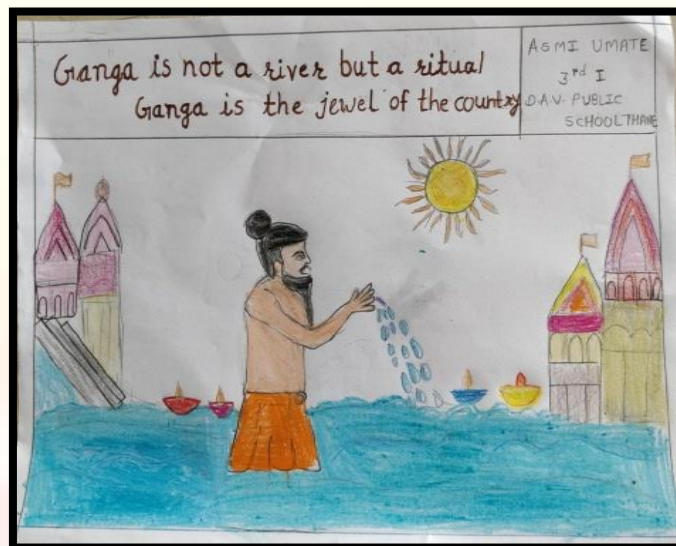 Ganga is not a river but a ritual
Ganga is the jewel of the country
ASMI UMATE
3rd I
D.A.V. PUBLIC
SCHOOL THANE